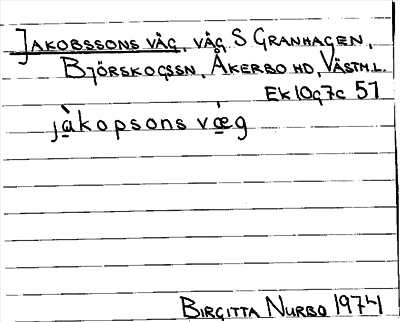 JAKOBSSONS VÄG, VÄG S GRANHAGEN,
BJÖRSKOGSSN, ÅKERBO HD, VÄSTM.L.
EK 10g7c 51
jà̠kopsons vǽ̠g
BIRGITTA NURBO 1974